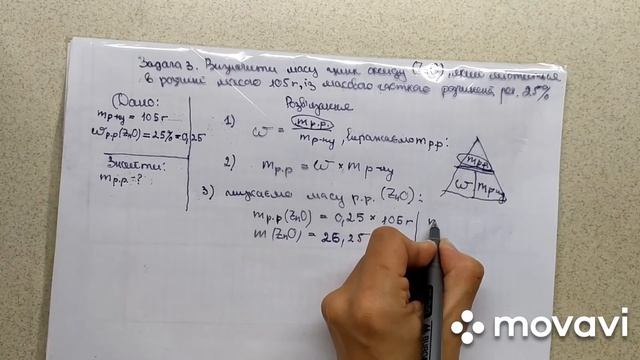 Задача 3. Визначити масу цинк оксиду (ZnO), який міститься
в розчині масою 105 г, із масовою часткою розчинень. реч. 25%
Дано:
m р-ну = 105 г
W р.р (ZnO) = 25% = 0,25
Знайти:
m р.р. - ?
Розв'язання
1) W = m р.р. / m р-ну, виражаємо m р.р:
2) m р.р = W × m р-ну
3) шукаємо масу р.р. (ZnO):
m р.р (ZnO) = 0,25 × 105 г
m (ZnO) = 26,25
m р.р
W m р-ну
movavi